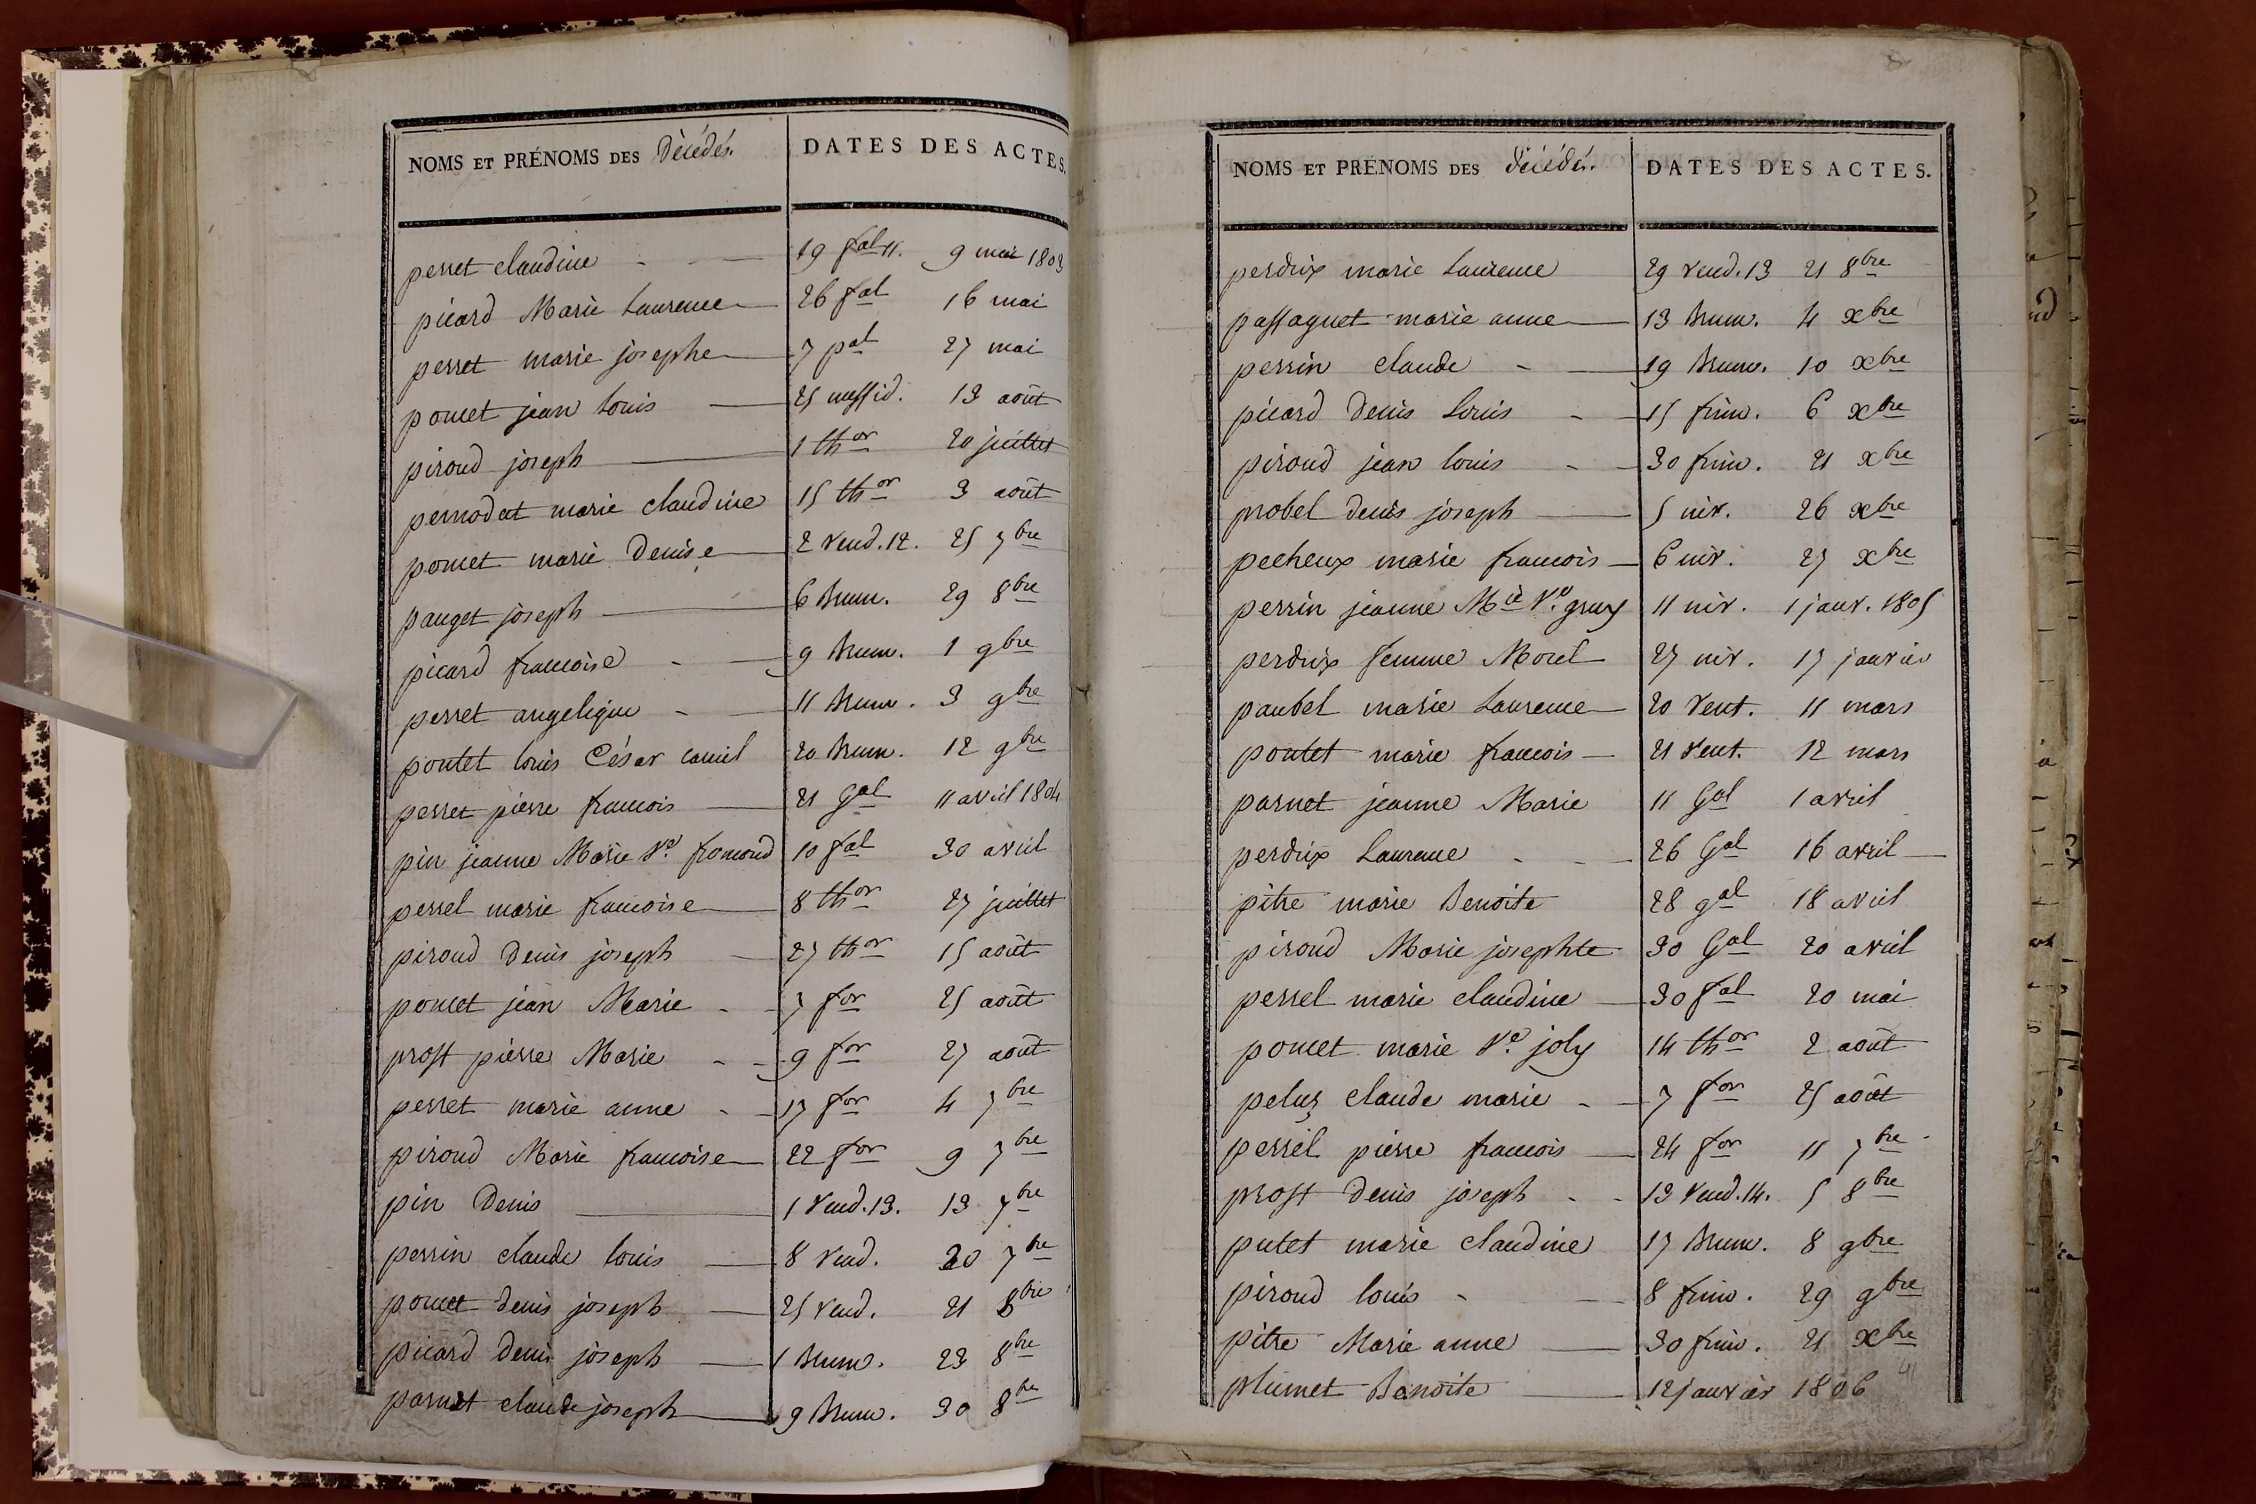 NOMS ET PRÉNOMS DES Décédés. DATES DES ACTES.
perret claudine 19 fal 11. 9 mai 1803
picard Marie Laurence 26 fal 16 mai
perret marie josephe 7 pal 27 mai
poncet jean Louis 25 messid. 13 août
piroud joseph 1 thor 20 juillet
pernodat marie claudine 15 thor 3 août
poncet marie Denise 2 vend. 12. 25 7bre
pauget joseph 6 Brum. 29 8bre
picard francoise 9 Brum. 1 9bre
perret angelique 11 Brum. 3 9bre
poutet louis César camil 20 Brum. 12 9bre
perret pierre francois 21 Gal 11 avril 1804
pin jeanne Marie Ve. fromond 10 fal 30 avril
perrel marie francoise 8 thor 27 juillet
piroud Denis joseph 27 thor 15 août
poncet jean Marie 7 for 25 août
prost pierre Marie 9 for 27 août
perret marie anne 17 for 4 7bre
piroud Marie francoise 22 for 9 7bre
pin Denis 1 Vend. 13. 13 7bre
perrin claude louis 8 Vend. 30 7bre
poncet denis joseph 25 Vend. 21 8bre
picard denis joseph 1 Brum. 23 8bre
parnet claude joseph 9 Brum. 30 8bre
NOMS ET PRÉNOMS DES décédés. DATES DES ACTES.
perdrix marie Laurence 29 Vend. 13 21 8bre
passaquet marie anne 13 Brum. 4 xbre
perrin claude 19 Brum. 10 xbre
picard Denis Louis 15 frim. 6 xbre
piroud jean louis 30 frim. 21 xbre
probel denis joseph 5 niv. 26 xbre
pecheux marie francois 6 niv. 27 xbre
perrin jeanne Mie Ve. gruy 11 niv. 1 janv. 1805
perdrix femme Morel 27 niv. 17 janvier
paubel marie Laurence 20 Vent. 11 mars
poutet marie francois 21 Vent. 12 mars
parnet jeanne Marie 11 Gal 1 avril
perdrix Laurence 26 Gal 16 avril
pitre marie Benoite 28 gal 18 avril
piroud Marie josephte 30 Gal 20 avril
perrel marie claudine 30 fal 20 mai
poncet marie Ve. joly 14 thor 2 août
peluz claude marie 7 for 25 août
perrel pierre francois 24 for 11 7bre
prost Denis joseph 13 Vend. 14. 5 8bre
putet marie claudine 17 Brum. 8 9bre
piroud louis 8 frim. 29 9bre
pitre Marie anne 30 frim. 21 xbre
plumet Benoite 12 janvier 1806
41